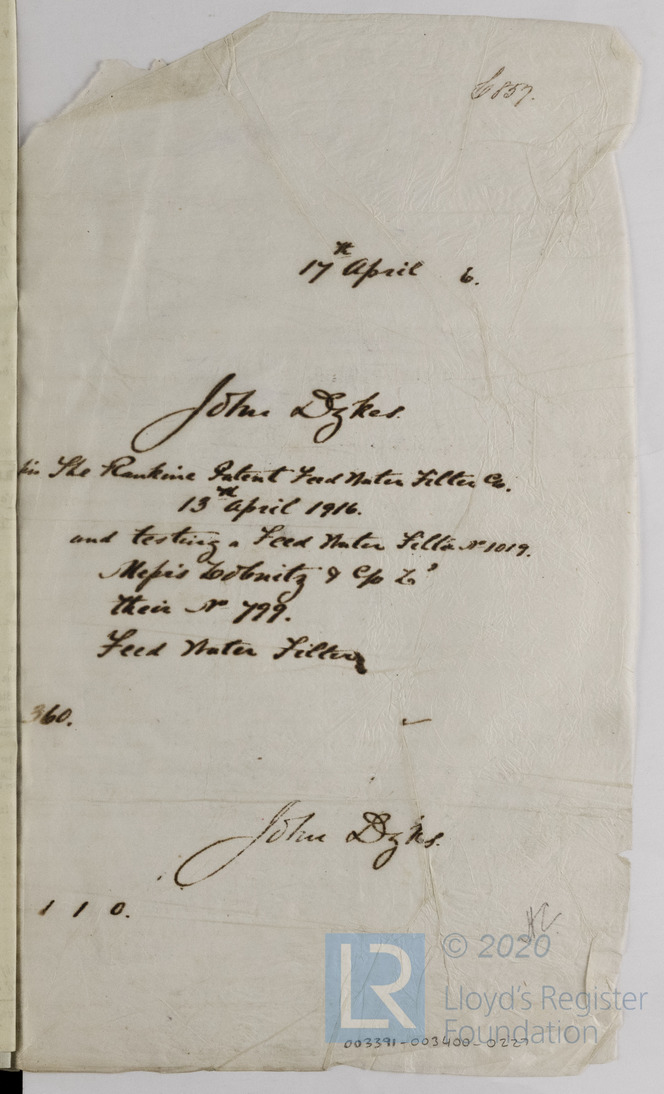 6857.
17th April 6.
John Dykes.
The Rankine Patent Feed Water Filter Co.
13th April 1916.
and testing a Feed Water Filter No 1019.
Messrs Lobnitz & Co Ld
their No 799.
Feed Water Filter
360.
John Dykes.
1 1 0.
LR
© 2020
Lloyd's Register
Foundation
003391-003400-0227